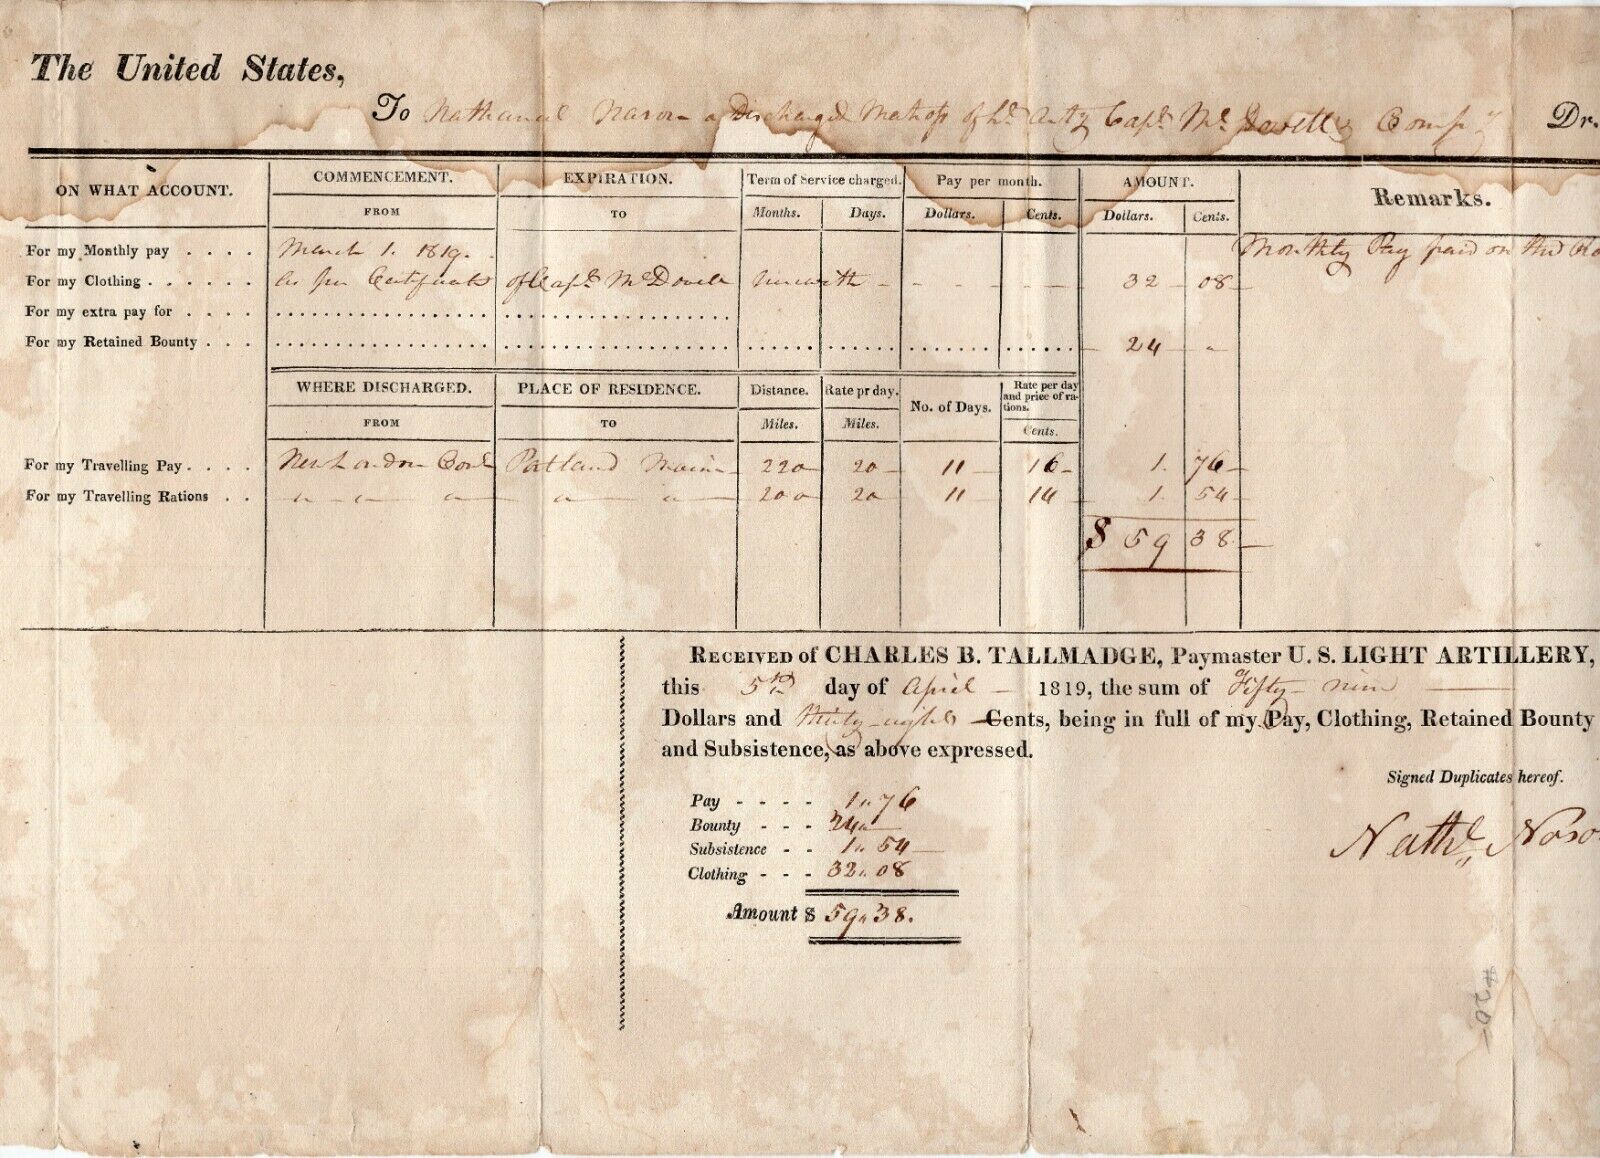 The United States,
To Nathaniel Nason a Discharged of Lt. Arty Capt. Mc Dovells Compy Dr.
ON WHAT ACCOUNT. COMMENCEMENT. EXPIRATION. Term of Service charged. Pay per month. AMOUNT. Remarks.
FROM TO Months. Days. Dollars. Cents. Dollars. Cents.
For my Monthly pay . . . . March 1. 1819. Monthly Pay paid on the
For my Clothing . . . . . . As per Certificate of Capt. McDovell herewith - - - - - - 32 08
For my extra pay for . . . .
For my Retained Bounty . . . 24 "
WHERE DISCHARGED. PLACE OF RESIDENCE. Distance. Rate pr day. No. of Days. Rate per day and price of rations.
FROM TO Miles. Miles. Cents.
For my Travelling Pay . . . . New London Cont Patland Main 220 20 11 16 1. 76
For my Travelling Rations . . " " " " " 200 20 11 14 1. 54
$ 59 38
RECEIVED of CHARLES B. TALLMADGE, Paymaster U. S. LIGHT ARTILLERY,
this 5th day of April 1819, the sum of Fifty nine
Dollars and thirty eight Cents, being in full of my Pay, Clothing, Retained Bounty
and Subsistence, as above expressed.
Signed Duplicates hereof.
Pay - - - - 1 " 76
Bounty - - - 24 "
Subsistence - - 1 " 54
Clothing - - - 32 " 08
Nathl Naso
Amount $ 59 " 38.
# 20-